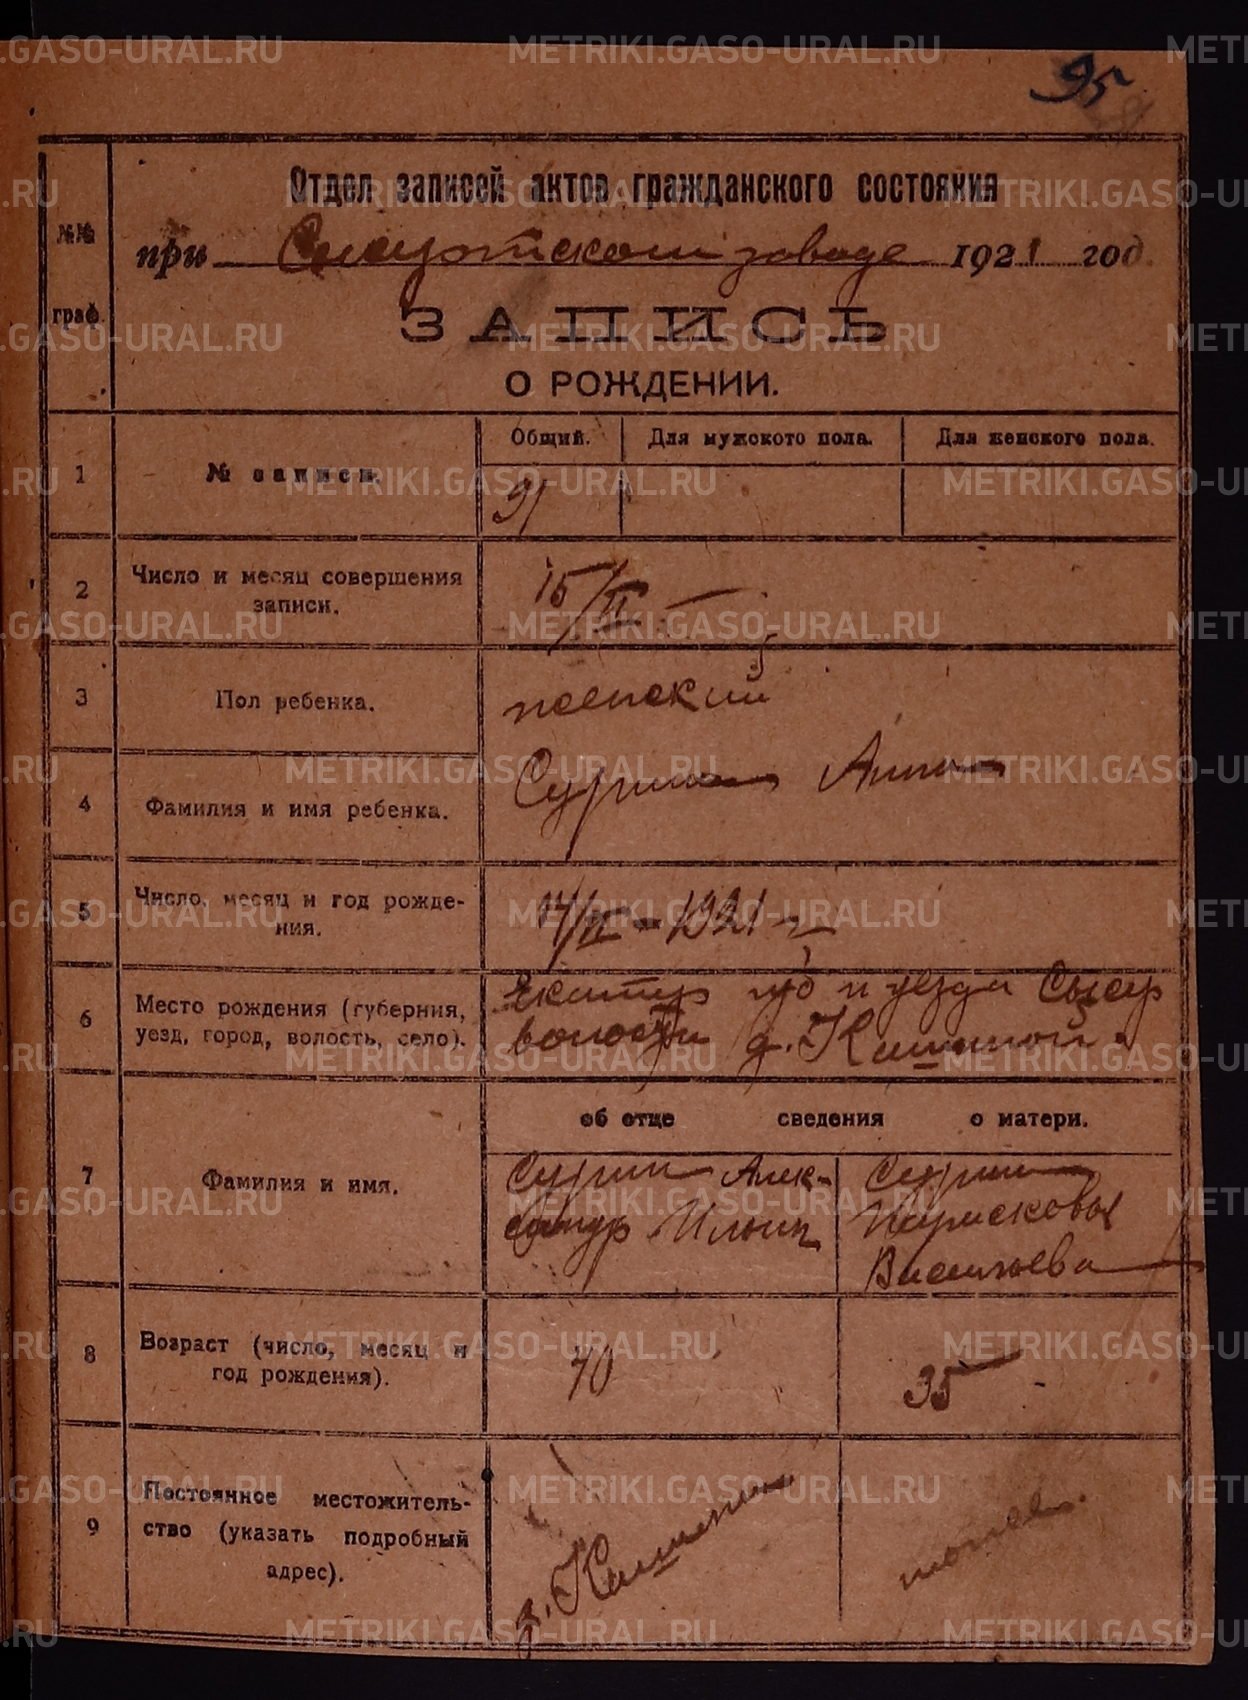 95
Отдел записей актов гражданского состояния
№№
при Сысертском заводе 1921 год.
граф.
ЗАПИСЬ
О РОЖДЕНИИ.
Общий. Для мужского пола. Для женского пола.
1 № записи.
91
2 Число и месяц совершения
записи.
15/II
3 Пол ребенка.
женский
4 Фамилия и имя ребенка.
Сурина Анна
5 Число, месяц и год рожде-
ния.
14/II - 1921 г
6 Место рождения (губерния,
уезд, город, волость, село).
Екатер губ и уезда Сысер
волости д. Кашиной
об отце сведения о матери.
7 Фамилия и имя.
Сурин Алек-
сандр Ильин
Сурина
Парасковья
Васильева
8 Возраст (число, месяц и
год рождения).
40
35
9 Постоянное местожитель-
ство (указать подробный
адрес).
д. Кашина
METRIKI.GASO-URAL.RU